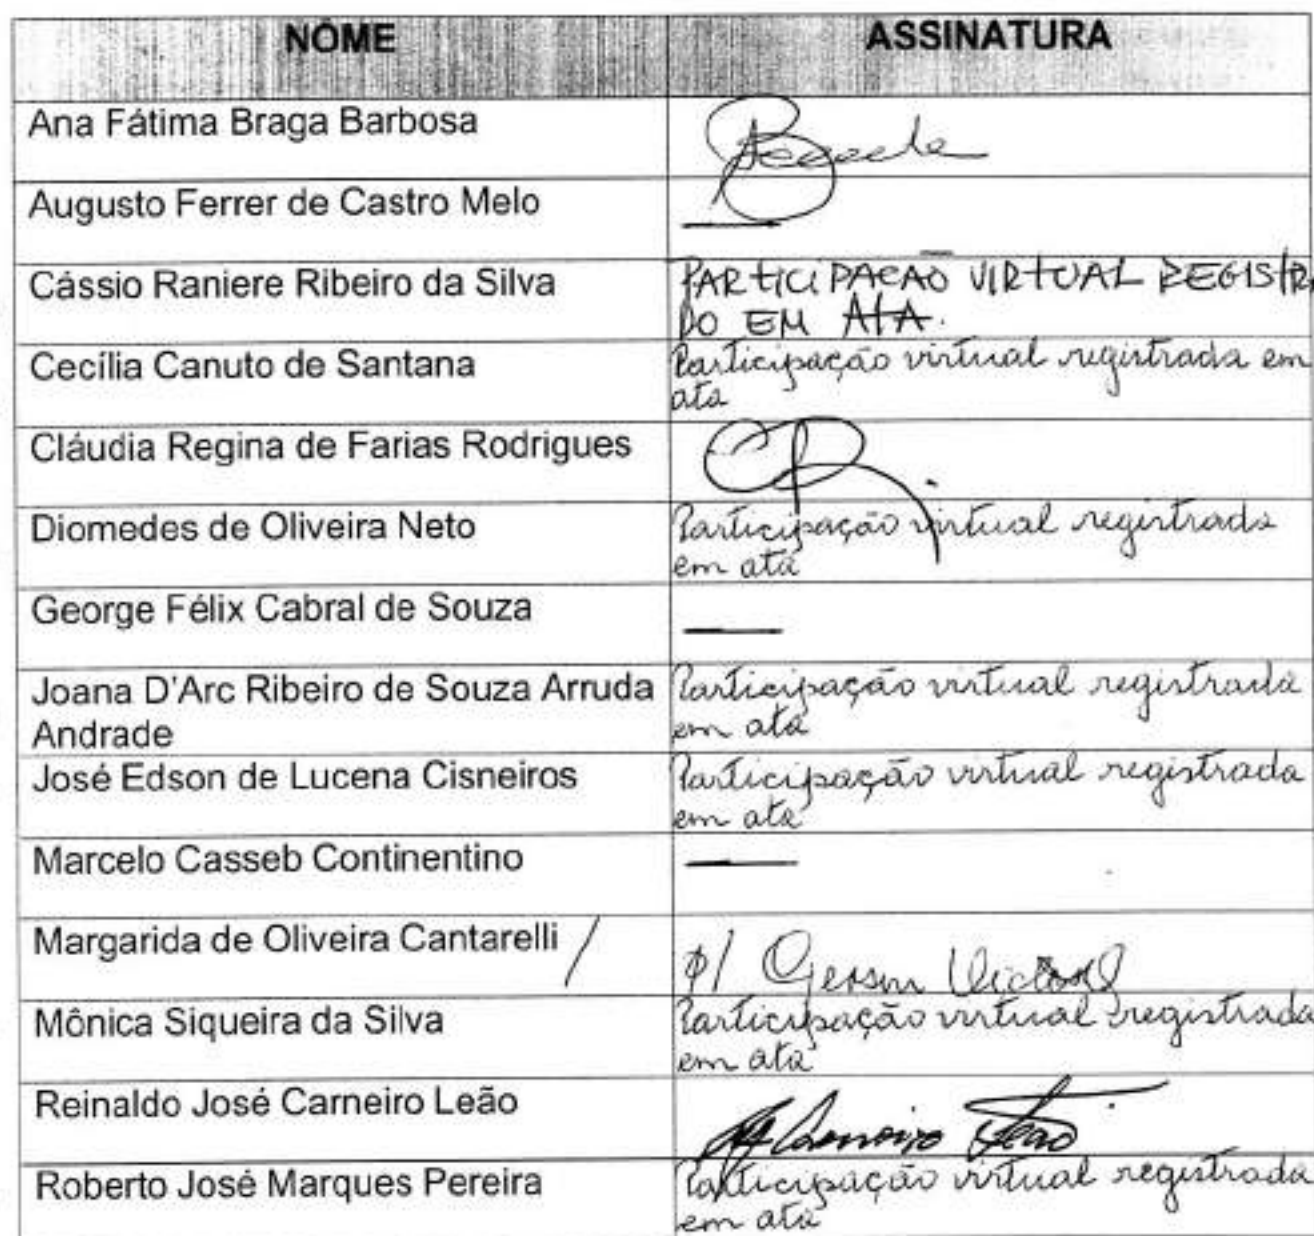 NOME ASSINATURA
Ana Fátima Braga Barbosa
Augusto Ferrer de Castro Melo
Cássio Raniere Ribeiro da Silva PARTICIPAÇÃO VIRTUAL REGISTRA
DO EM ATA.
Cecília Canuto de Santana Participação virtual registrada em
ata
Cláudia Regina de Farias Rodrigues
Diomedes de Oliveira Neto Participação virtual registrada
em ata
George Félix Cabral de Souza
Joana D'Arc Ribeiro de Souza Arruda Participação virtual registrada
Andrade em ata
José Edson de Lucena Cisneiros Participação virtual registrada
em ata
Marcelo Casseb Continentino
Margarida de Oliveira Cantarelli / p/ Gerson
Mônica Siqueira da Silva Participação virtual registrada
em ata
Reinaldo José Carneiro Leão Carneiro Leão
Roberto José Marques Pereira Participação virtual registrada
em ata